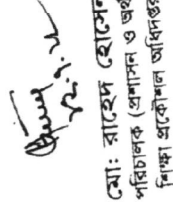 ১২.৭.২
মো: রাহেদ হোসেন
পরিচালক (প্রশাসন ও অর্থ
শিক্ষা প্রকৌশল অধিদপ্তর